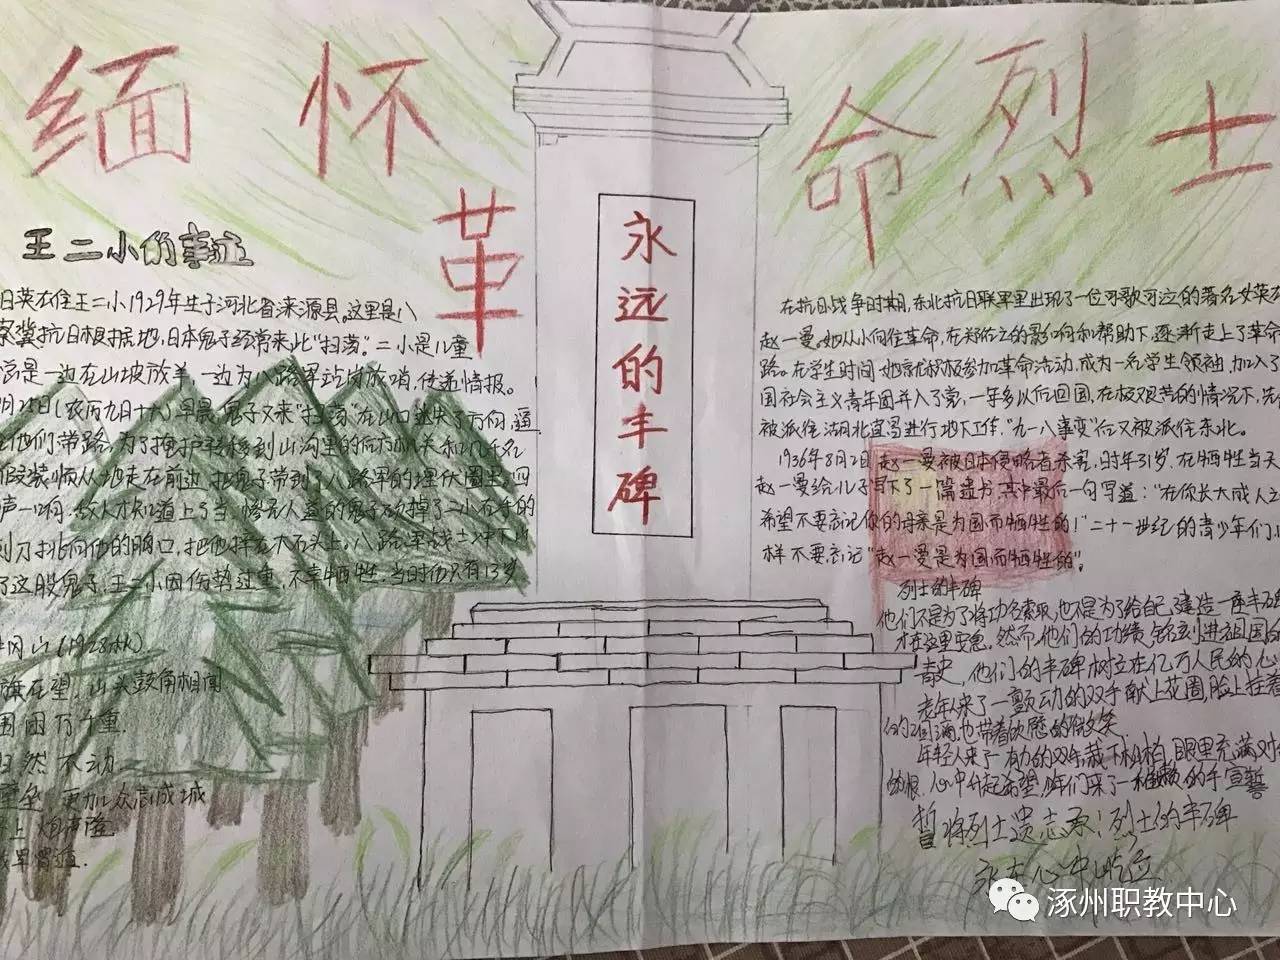 缅怀革命烈士
永远的丰碑
王二小的事迹
王二小1929年生于河北省涞源县。这里是八
察冀抗日根据地,日本鬼子经常来此“扫荡”。二小是儿童
是一边在山坡放羊,一边为八路军站岗放哨,传递情报。
月25日(农历九月十六)早晨,鬼子又来“扫荡”,在山口迷失了方向,逼
他们带路,为了掩护转移到山沟里的后方机关和几千名
假装顺从地走在前边,把鬼子带到了八路军的埋伏圈里,四
声一响,敌人才知道上了当,
刺刀挑向他的胸口,把他摔在大石头上。八路军战士冲下
了这股鬼子,王二小因伤势过重,不幸牺牲,当时他只有13岁
冈山(1928秋)
旗在望,山头鼓角相闻
围困万千重.
然不动
更加众志成城
上炮声隆
宵遁.
在抗日战争时期,东北抗日联军里出现了一位可歌可泣的著名女英
赵一曼。她从小向往革命,在郑佑之的影响和帮助下,逐渐走上了革命
路。在学生时间,她就积极参加革命活动,成为一名学生领袖,加入了
国社会主义青年团并入了党,一年多以后回国,在极艰苦的情况下,先
被派往湖北宜昌进行地下工作,“九一八事变”后又被派往东北。
1936年8月2日,赵一曼被日本侵略者杀害,时年31岁,在牺牲当天
赵一曼给儿子写下了一篇遗书,其中最后一句写道:“在你长大成人之
希望不要忘记你的母亲是为国而牺牲的!”二十一世纪的青少年们,
样不要忘记“赵一曼是为国而牺牲的”。
烈士的丰碑
他们不是为了将功名索取,也不是为了给自己建造一座丰碑
才在这里安息。然而,他们的功绩铭刻进祖国的
青史,他们的丰碑树立在亿万人民的心
老年人来了一颤动的双手献上花圈,脸上挂着
的泪滴,也带着欣慰的微笑
年轻人来了有力的双手,栽下松柏,眼里充满对
的恨,心中升起希望,来了一稚嫩的手宣誓
誓将烈士遗志承!烈士的丰碑
永在心中屹立
涿州职教中心